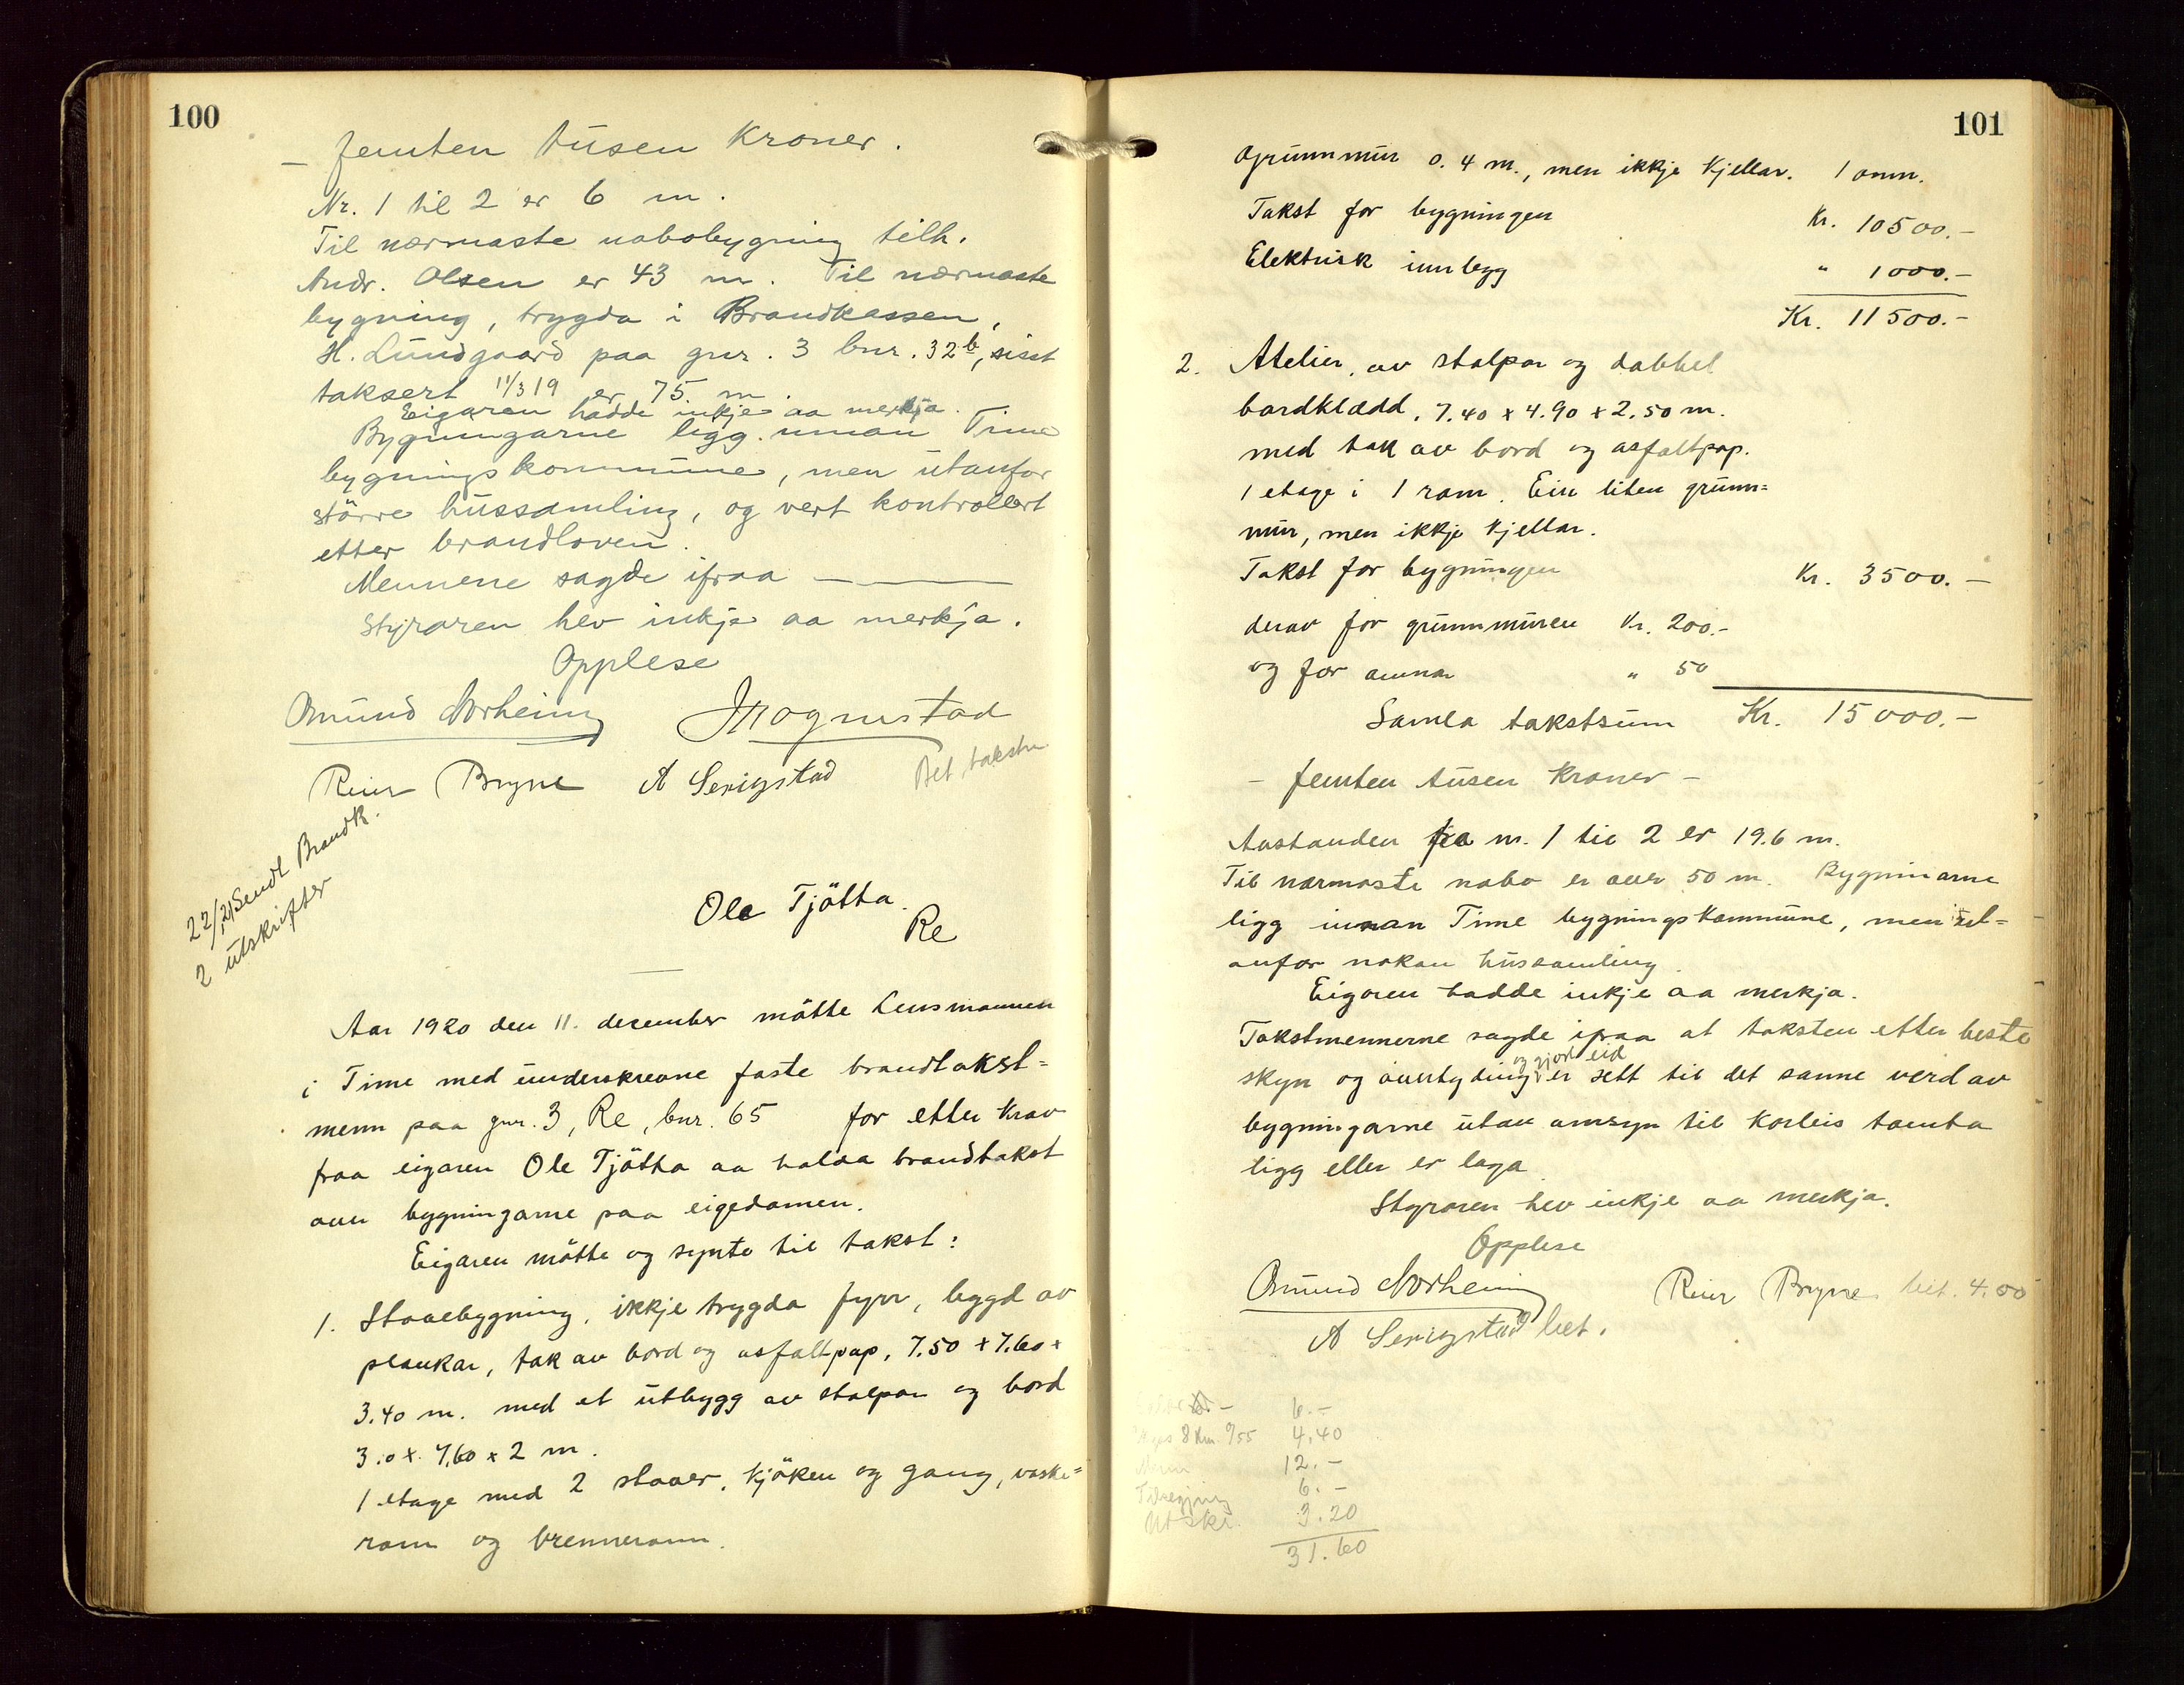 100
– femten tusen kroner.
Nr. 1 til 2 er 6 m.
Til nærmaste nabobygning tilh.
Andr. Olsen er 43 m. Til nærmaste
bygning, trygda i Brandkassen,
H. Lundgaard paa gnr. 3 bnr. 32b, sist
taksert 11/3 19 er 75 m.
Eigaren hadde inkje aa merkja.
Bygningarne ligg innan Time
bygningskommune, men utanfor
större hussamling, og vert kontrollert
etter brandloven.
Mennene sagde ifraa —
Styraren hev inkje aa merkja.
Opplese
Omund Norheim
Reier Bryne A Serigstad Bet takstn
22/1 21 Sendt Brandk.
2 utskrifter
Ole Tjötta.
Re
Aar 1920 den 11. desember mötte Lensmannen
i Time med underskrevne faste brandtakst=
menn paa gnr. 3, Re, bnr. 65 for etter krav
fraa eigaren Ole Tjötta aa halda brandtakst
over bygningarne paa eigedomen.
Eigaren mötte og synte til takst:
1. Stovebygning, ikkje trygda fyrr, bygd av
plankar, tak av bord og asfaltpap, 7.50 x 7.60 x
3.40 m. med et utbygg av stolpar og bord
3.0 x 7,60 x 2 m.
1 etage med 2 stover, kjöken og gang, vaske=
rom og brennerom.
101
Grunnmur 0.4 m., men ikkje kjellar. 1 omn.
Takst for bygningen Kr. 10500.–
Elektrisk innlegg " 1000.–
Kr. 11500.–
2. Atelier, av stolpar og dobbel
bordklædd, 7.40 x 4.90 x 2.50 m.
med tak av bord og asfaltpap.
1 etage i 1 rom. Ein liten grunn=
mur, men ikkje kjellar.
Takst for bygningen Kr. 3500.–
derav for grunnmuren Kr. 200.–
og for omnar " 50
Samla takstsum Kr. 15000.–
– femten tusen kroner –
Avstanden fra nr. 1 til 2 er 19.6 m.
Til nærmaste nabo er over 50 m. Bygninarne
ligg innan Time bygningskommune, men ut=
anfor nokon hussamling.
Eigaren hadde inkje aa merkja.
Takstmennerne sagde ifraa at taksten etter beste
og gjort eid
skyn og overtyding er sett til det sanne verd av
bygningarne utan omsyn til korleis tomta
ligg eller er laga.
Styraren hev inkje aa merkja.
Opplese
Omund Norheim Reier Bryne bet. 4.00
A Serigstad bet.
6.–
8 km. 4,40
12.–
6.–
Utskr. 3.20
31.60